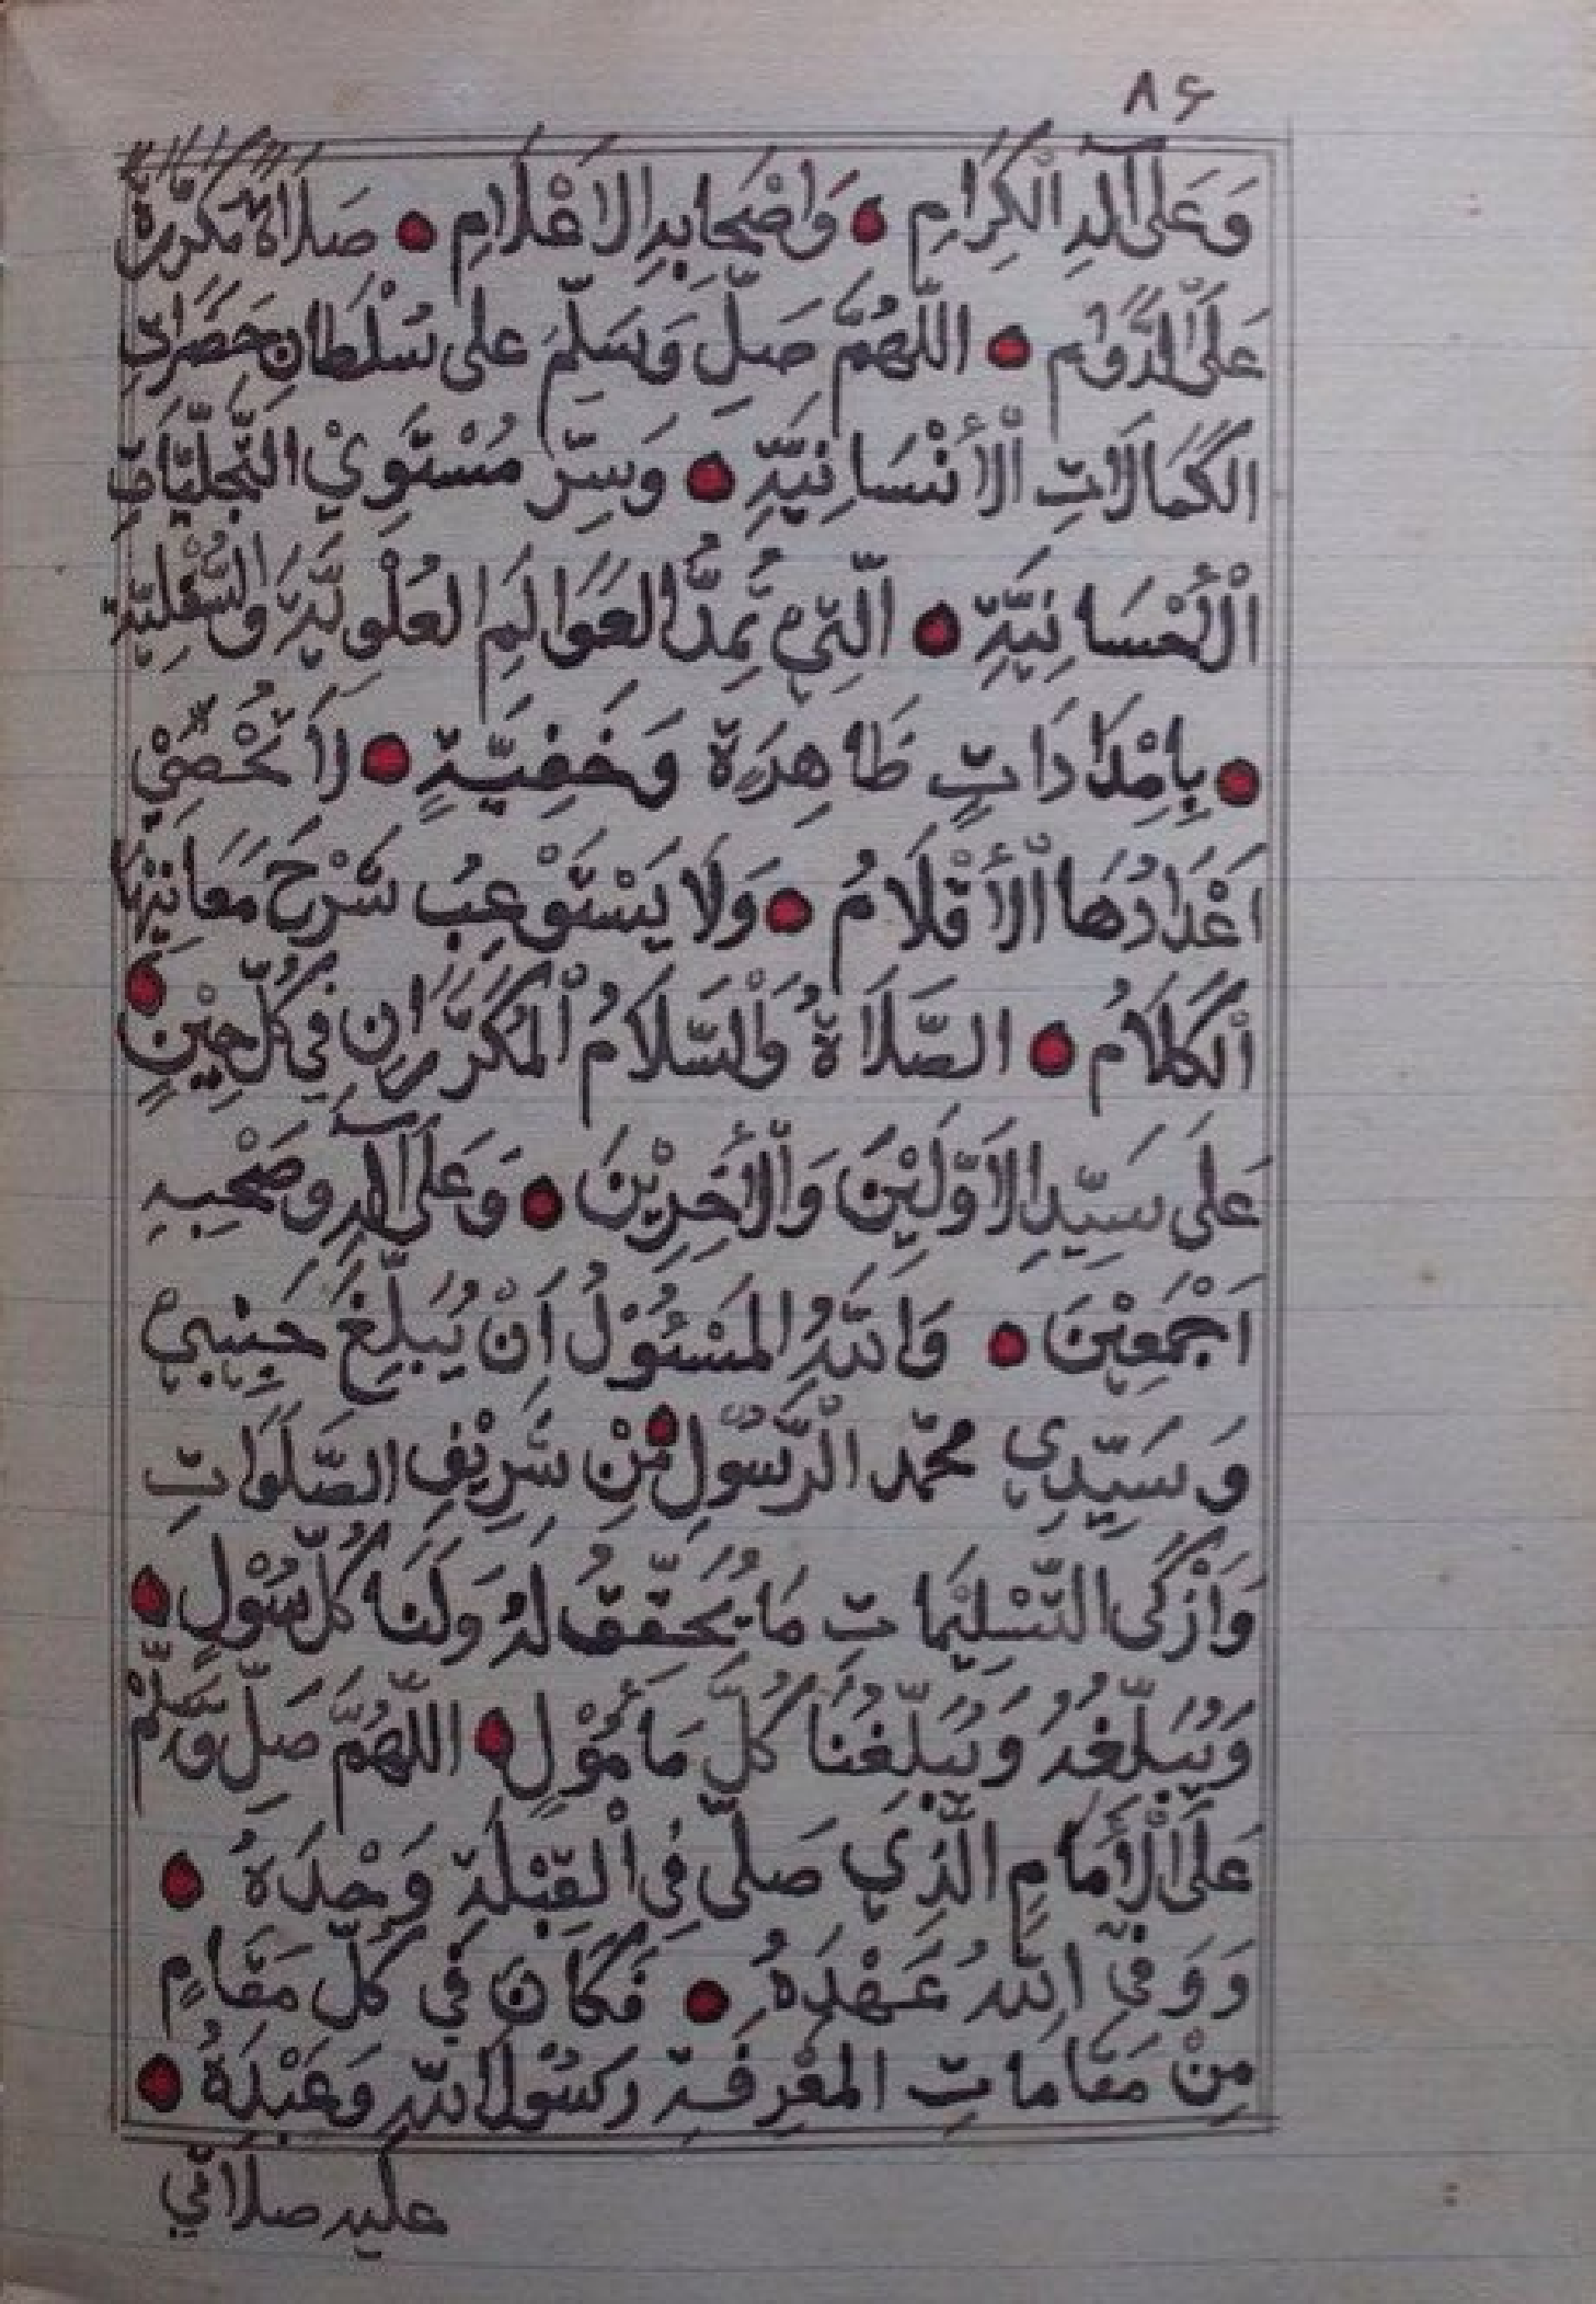 ٨٤
وَعَلَى آلِهِ الْكِرَامِ • وَاصْحَابِهِ الاَعْلَامِ • صَلَاةً مُكَرَّرَةً
عَلَى الدَّوَامِ • اللّٰهُمَّ صَلِّ وَسَلِّمْ على سُلْطَانِ حَضَرَاتِ
الكَمَالَاتِ الْأَنْسَانِيَّةِ • وَسِرِّ مُسْتَوِيْ التَّجَلِّيَاتِ
الْأِحْسَانِيَّةِ • الَّتِيْ تُمِدُّ العَوَالِمَ العُلْوِيَّةِ وَالسُّفْلِيَّةِ
• بِامْدَادَاتٍ ظَاهِرَةٍ وَخَفِيَّةٍ • لَا تُحْصِيْ
اَعْدَادُهَا الْأَقْلَامُ • وَلَا يَسْتَوْعِبُ شَرْحَ مَعَانِيْهَا
الْكَلَامُ • الصَّلَاةُ وَالسَّلَامُ الْمُكَرَّرَانِ فِي كُلِّ حِيْنٍ •
عَلى سَيِّدِ الاَوَّلِيْنَ وَالْأَخِرِيْنَ • وَعَلَى آلِهِ وصَحْبِهِ
اَجْمَعِيْنَ • وَاللّٰهُ المَسْئُوْلُ اَنْ يُبَلِّغَ حَبِيْبِيْ
وَسَيِّدِي محمّد الْرَّسُوْلِ • مِنْ شَرِيْفِ الصَّلَوَاتِ
وَاَزْكَى التَّسْلِيْمَاتِ مَا يُحَقِّقُ لَهُ وَلَنَا كُلَّ سُوْلٍ •
وَيُبَلِّغُهُ وَيُبَلِّغُنَا كُلَّ مَأمُوْلٍ • اللّٰهُمَّ صَلِّ وَسَلِّمْ
عَلَى الْأِمَامِ الَّذِي صَلّى فِي الْقِبْلَةِ وَحْدَهُ •
وَوَفّىٰ اللّٰهُ عَهْدَهُ • فَكَانَ فِي كُلِّ مَقَامٍ
مِنْ مَقَامَاتِ المَعْرِفَةِ رَسُوْلَ اللّٰهِ وَعَبْدَهُ •
عليه صلاتي